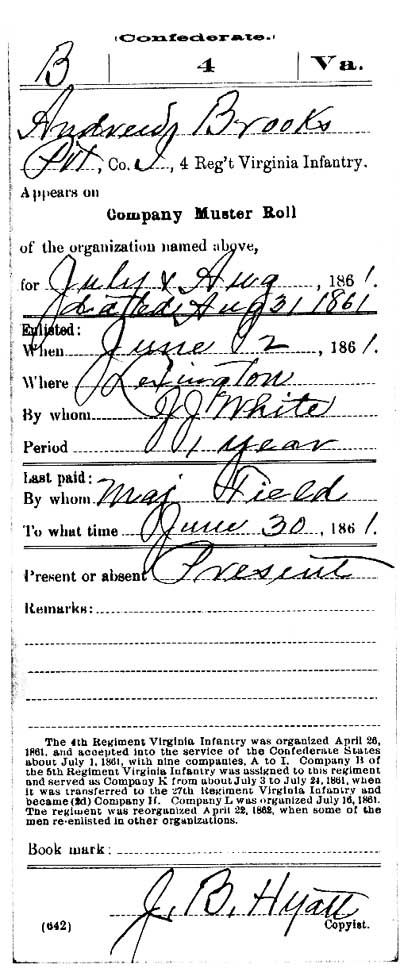 (Confederate.)
B | 4 | Va.
Andrew Brooks
Pvt, Co. I, 4 Reg't Virginia Infantry.
Appears on
Company Muster Roll
of the organization named above,
for July & Aug, 1861.
dated Aug 31 1861
Enlisted:
When June 12, 1861.
Where Lexington
By whom JJ White
Period 1 year
Last paid:
By whom Maj Field
To what time June 30, 1861.
Present or absent Present
Remarks:
The 4th Regiment Virginia Infantry was organized April 26,
1861, and accepted into the service of the Confederate States
about July 1, 1861, with nine companies, A to I. Company B of
the 5th Regiment Virginia Infantry was assigned to this regiment
and served as Company K from about July 3 to July 24, 1861, when
it was transferred to the 27th Regiment Virginia Infantry and
became (2d) Company H. Company L was organized July 16, 1861.
The regiment was reorganized April 22, 1862, when some of the
men re-enlisted in other organizations.
Book mark:
J. B. Hyatt
(642) Copyist.